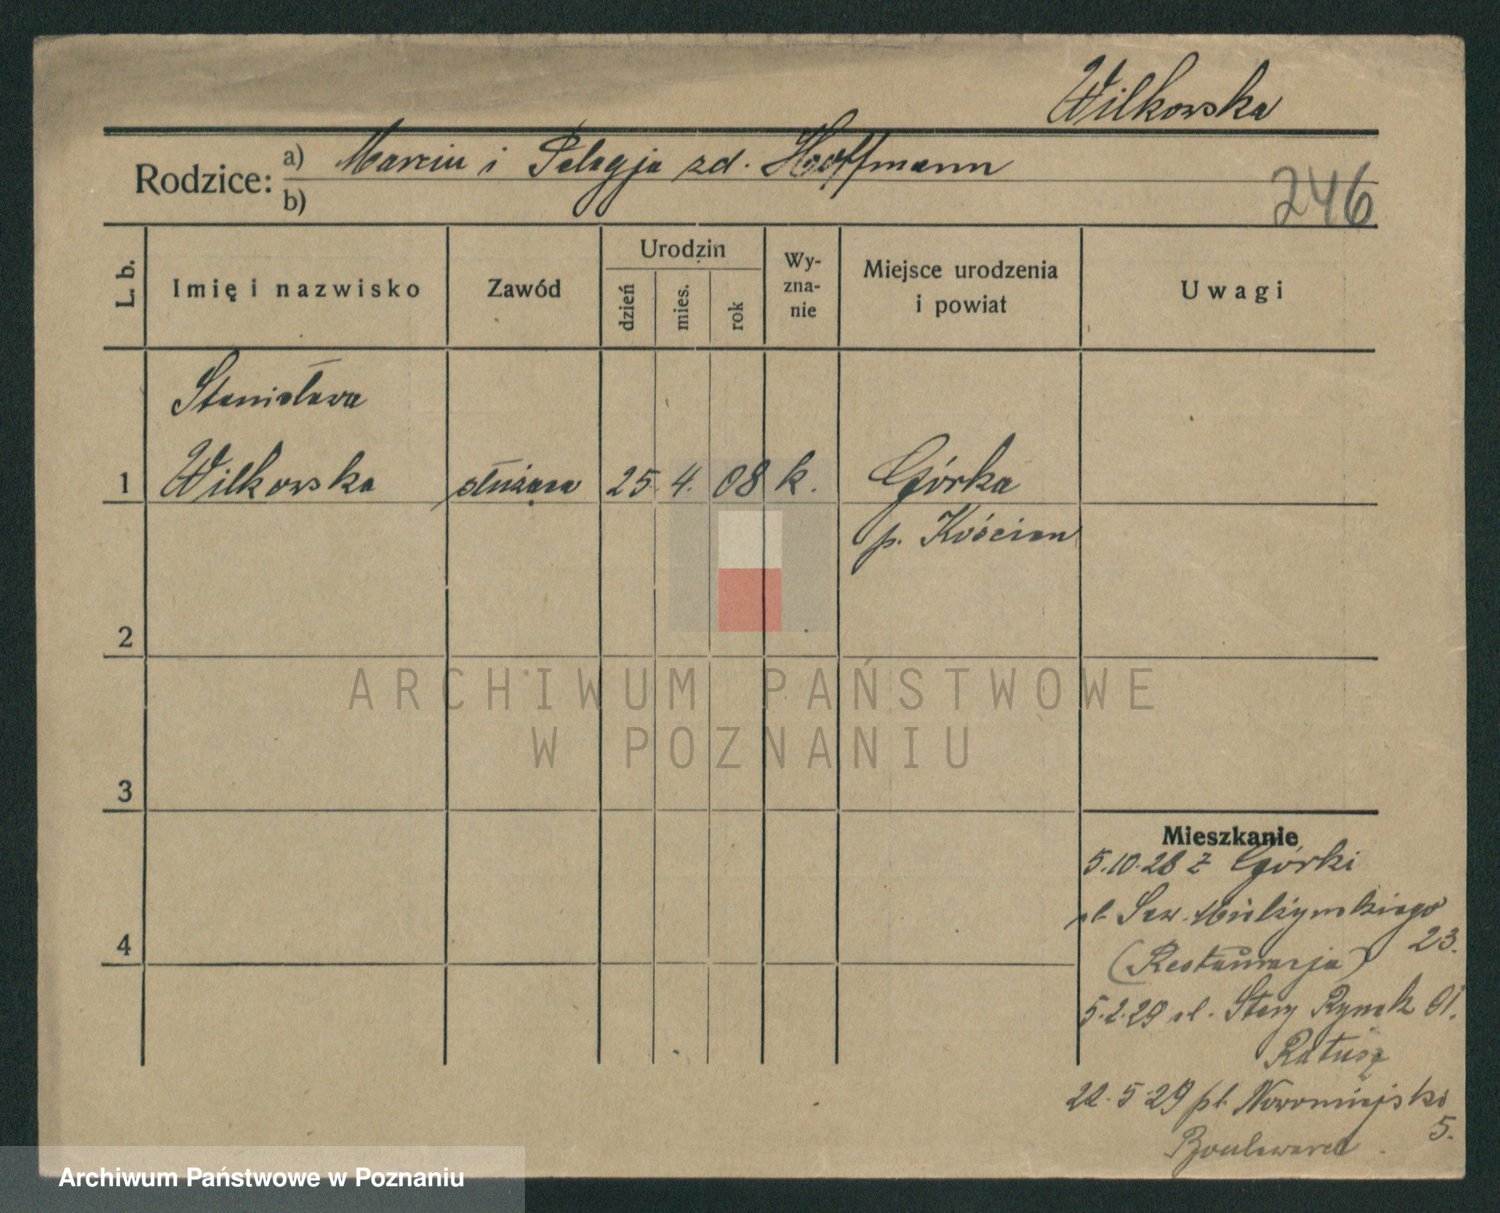 Wilkowska
Rodzice: a) Marcin i Pelagja zd. Hoffmann
b)
246
L. b.
Imię i nazwisko
Zawód
Urodzin
dzień
mies.
rok
Wy-
zna-
nie
Miejsce urodzenia
i powiat
Uwagi
Stanisława
1 Wilkowska służąca 25. 4. 08 k. Górka
p. Kościan
2
3
4
Mieszkanie
5.10.28 z Górki
ul. Sew. Mielżyńskiego
23.
(Restauracja)
5.2.29 ul. Stary Rynek 01.
Ratusz
22.5.29 pl. Nowomiejski
5.
Boulevard.
ARCHIWUM PAŃSTWOWE
W POZNANIU
Archiwum Państwowe w Poznaniu